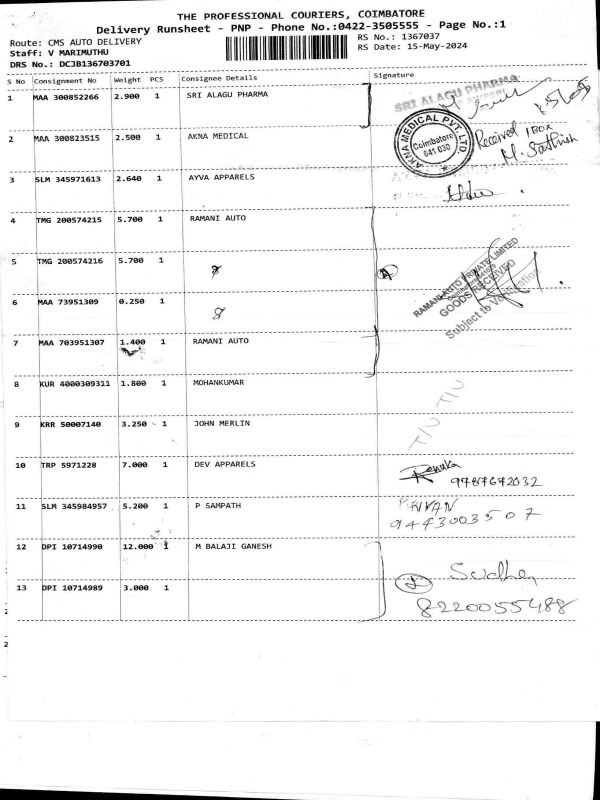 THE PROFESSIONAL COURIERS, COIMBATORE
Delivery Runsheet - PNP - Phone No.:0422-3505555 - Page No.:1
Route: CMS AUTO DELIVERY
RS No.: 1367037
Staff: V MARIMUTHU
RS Date: 15-May-2024
DRS No.: DCJB136703701
S No Consignment No Weight PCS Consignee Details Signature
1 MAA 300852266 2.900 1 SRI ALAGU PHARMA
SRI ALAGU PHARMA
2 MAA 300823515 2.500 1 AKNA MEDICAL
AKNA MEDICAL PVT. LTD.
Coimbatore
641 030
Received 1 BOX
M. Sathish
3 SLM 345971613 2.640 1 AYVA APPARELS
4 TMG 200574215 5.700 1 RAMANI AUTO
5 TMG 200574216 5.700 1
RAMANI AUTO PRIVATE LIMITED
GOODS RECEIVED
Subject to Verification
6 MAA 73951309 0.250 1
7 MAA 703951307 1.400 1 RAMANI AUTO
8 KUR 4000309311 1.800 1 MOHANKUMAR
9 KRR 50007140 3.250 1 JOHN MERLIN
10 TRP 5971228 7.000 1 DEV APPARELS
Renuka
9787672032
11 SLM 345984957 5.200 1 P SAMPATH
9443003507
12 DPI 10714990 12.000 1 M BALAJI GANESH
13 DPI 10714989 3.000 1
8220055488